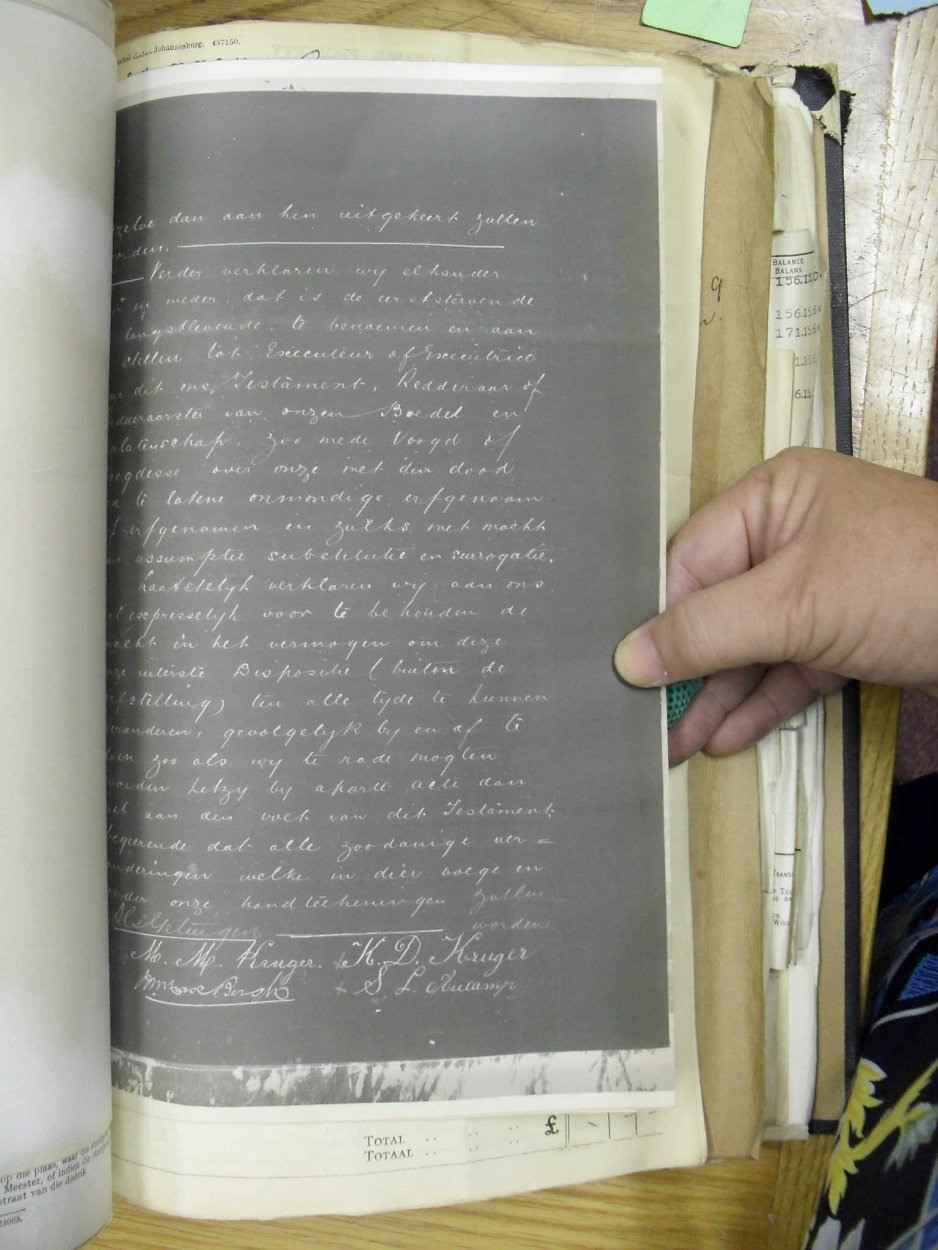 Johannesburg. 437150.
dan aan hen uitgekeert zullen
orden.
Verder verklaren wy elkander
en weder, dat is de eerststervende
langstlevende, te benoemen en aan
stellen tot Executeur of Executrice
dit ons Testament, Redderaar of
edderaarster van onzen Boedel en
alatenschap, zoo mede Voogd of
oogdesse over onze met den dood
a te latene onmondige erfgenaam
erfgenamen en zulks met macht
assumptie substitutie en surrogatie.
haatstelyk verklaren wy aan ons
expresselyk voor te behouden de
acht en het vermogen om deze
nze uiterste Dispositie (buiten de
erfstelling) ten alle tyde te kunnen
veranderen, gevolgelyk by en af te
doen zoo als wy te rade mogten
worden hetzy by aparte acte dan
el aan den voet van dit Testament,
begeerende dat alle zoodanige ver=
anderingen welke in dier voege en
onder onze handteekeningen zullen
worden
M. M. Kruger. K. D. Kruger
Bergh + S. L. Aucamp
TOTAL .. .. .. £
TOTAAL .. .. ..
BALANCE
BALANS.
op die plaas, waar die
Meester, of indien die
straat van die distrik